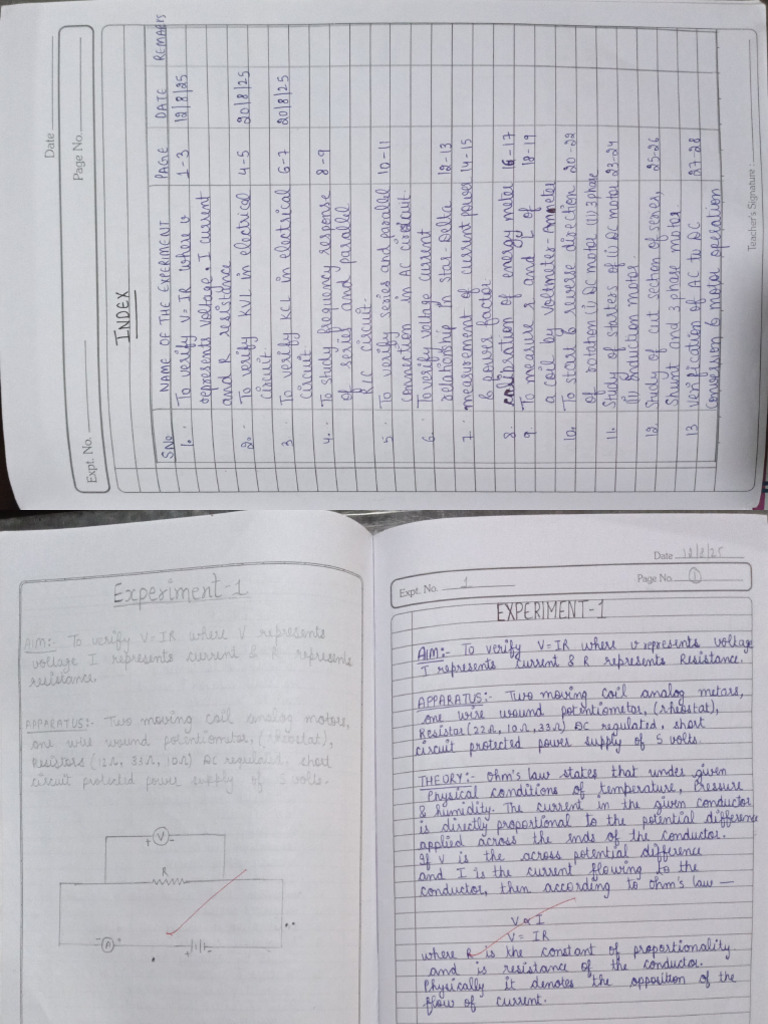 Date
Page No.
Expt. No.
INDEX
S.No. NAME OF THE EXPERIMENT PAGE DATE REMARKS
1. To verify V=IR where v 1-3 12/8/25
represents voltage, I current
and R resistance
2. To verify KVL in electrical 4-5 20/8/25
circuit
3 To verify KCL in electrical 6-7 20/8/25
circuit
4. To study frequency response 8-9
of series and parallel
RLC circuit.
5. To verify series and parallel 10-11
connection in AC circuit.
6. To verify voltage current
relationship in star-Delta 12-13
7. measurement of current power 14-15
& power factor.
8. calibration of energy meter 16-17
9 To measure r and L of 18-19
a coil by voltmeter-Ammeter
10. To start & reverse direction 20-22
of rotation (i) DC motor (ii) 3 phase
11. Study of starters of (i) DC motor 23-24
(ii) Induction motor.
12. Study of cut section of series, 25-26
Shunt and 3 phase motor.
13 verification of AC to DC 27-28
conversion & motor operation
Teacher's Signature :
Experiment-1
AIM:- To verify V=IR where V represents
voltage I represents current & R represents
resistance.
APPARATUS:- Two moving coil analog motors,
one wire wound potentiometer, (rheostat),
Resistors (12Ω, 33Ω, 10Ω) DC regulated, short
circuit protected power supply of 5 volts.
+ V -
R
- A +
+ -
Date 12/8/25
Expt. No. 1
Page No. 1
EXPERIMENT-1
AIM:- To verify V=IR where v represents voltage
I represents current & R represents Resistance.
APPARATUS:- Two moving coil analog metars,
one wire wound potentiometer, (rheostat),
Resistor (22Ω, 10Ω, 33Ω) DC regulated, short
circuit protected power supply of 5 volts.
THEORY:- Ohm's law states that under given
Physical conditions of temperature, pressure
& humidity. The current in the given conductor
is directly proportional to the potential difference
applied across the ends of the conductor.
If V is the across potential difference
and I is the current flowing to the
conductor, then according to ohm's law —
V ∝ I
V = IR
where R is the constant of proportionality
and is resistance of the conductor.
Physically it denotes the opposition of the
flow of current.